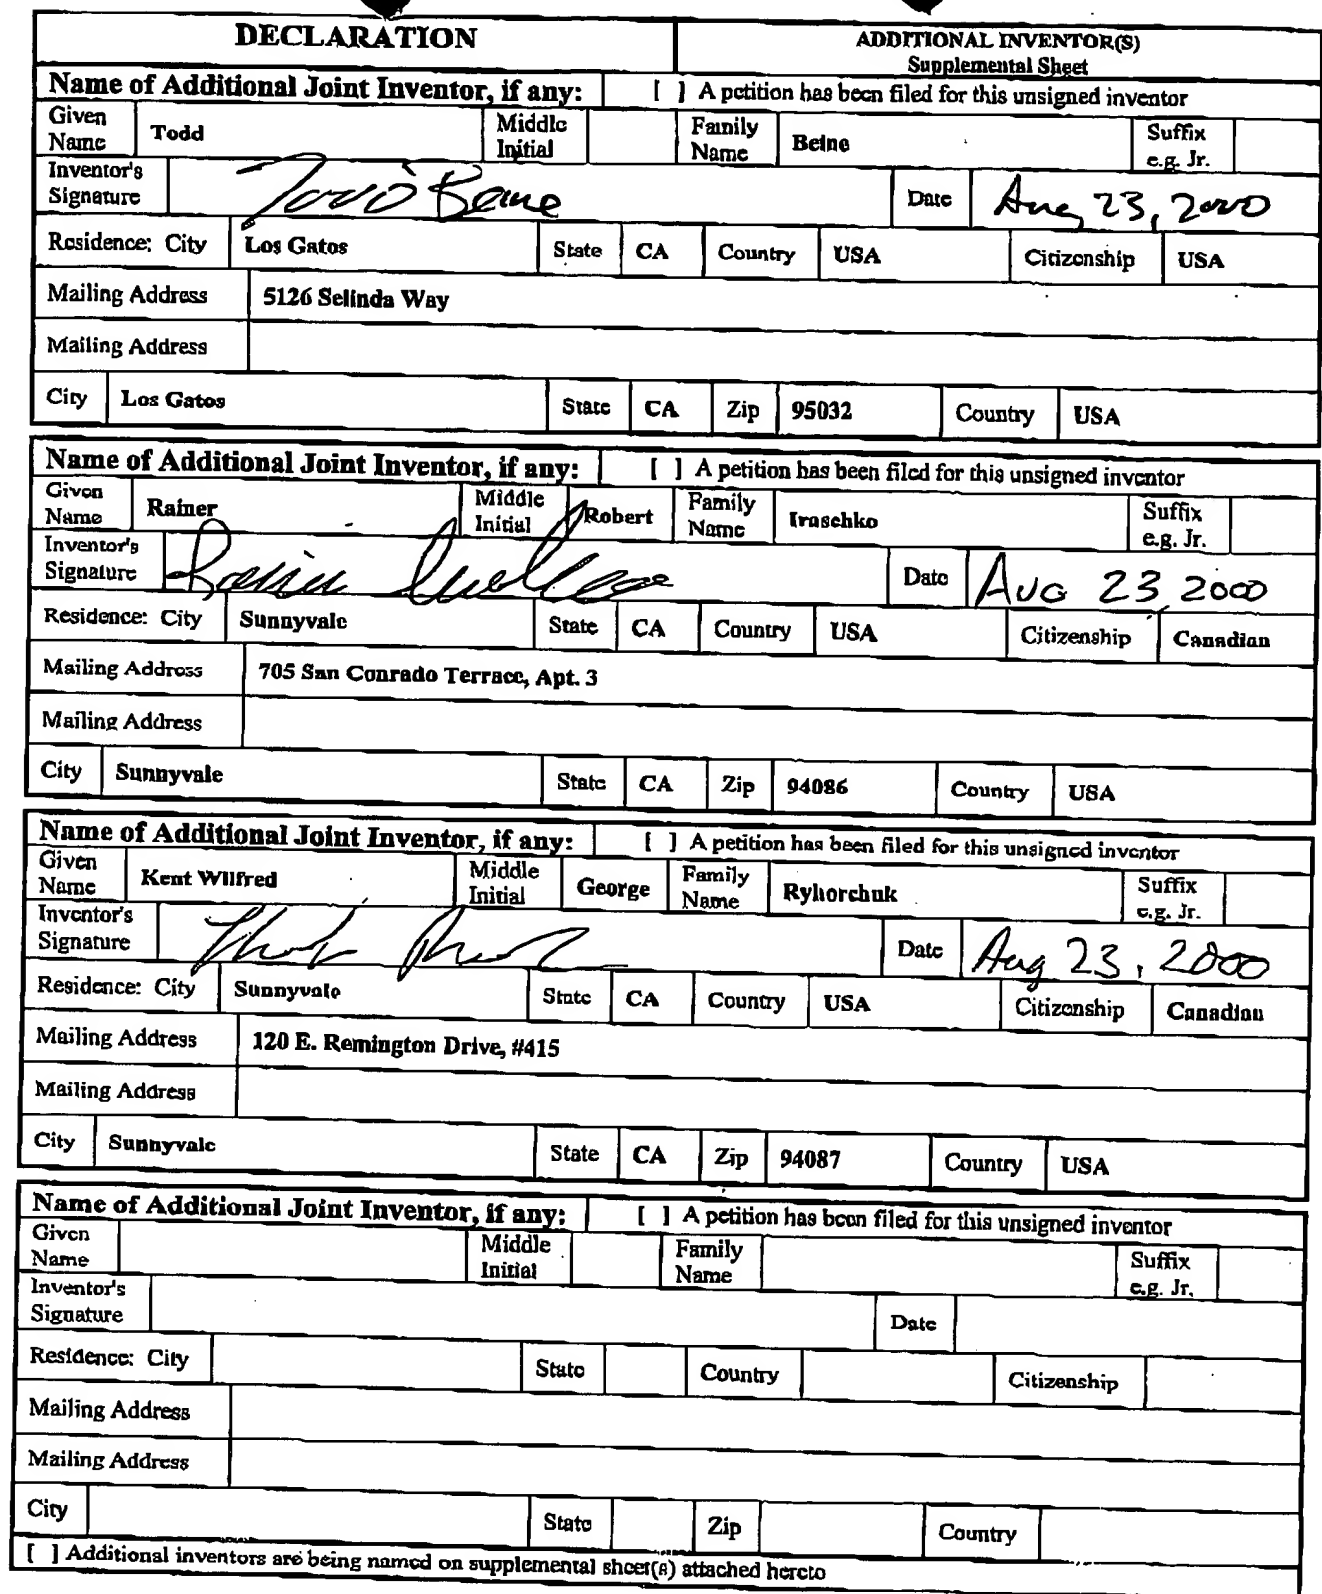 DECLARATION
ADDITIONAL INVENTOR(S)
Supplemental Sheet
Name of Additional Joint Inventor, if any: [ ] A petition has been filed for this unsigned inventor
Given Name Todd Middle Initial Family Name Beine Suffix e.g. Jr.
Inventor's Signature Todd Beine Date Aug 23, 2000
Residence: City Los Gatos State CA Country USA Citizenship USA
Mailing Address 5126 Selinda Way
Mailing Address
City Los Gatos State CA Zip 95032 Country USA
Name of Additional Joint Inventor, if any: [ ] A petition has been filed for this unsigned inventor
Given Name Rainer Middle Initial Robert Family Name Iraschko Suffix e.g. Jr.
Inventor's Signature Date AUG 23, 2000
Residence: City Sunnyvale State CA Country USA Citizenship Canadian
Mailing Address 705 San Conrado Terrace, Apt. 3
Mailing Address
City Sunnyvale State CA Zip 94086 Country USA
Name of Additional Joint Inventor, if any: [ ] A petition has been filed for this unsigned inventor
Given Name Kent Wilfred Middle Initial George Family Name Ryhorchuk Suffix e.g. Jr.
Inventor's Signature Date Aug 23, 2000
Residence: City Sunnyvale State CA Country USA Citizenship Canadian
Mailing Address 120 E. Remington Drive, #415
Mailing Address
City Sunnyvale State CA Zip 94087 Country USA
Name of Additional Joint Inventor, if any: [ ] A petition has been filed for this unsigned inventor
Given Name Middle Initial Family Name Suffix e.g. Jr.
Inventor's Signature Date
Residence: City State Country Citizenship
Mailing Address
Mailing Address
City State Zip Country
[ ] Additional inventors are being named on supplemental sheet(s) attached hereto